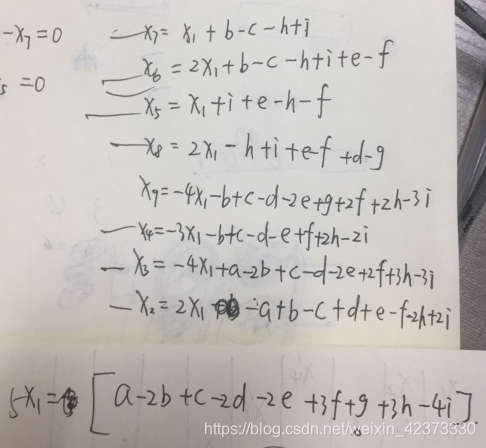 -x₇=0 — x₇= x₁+b-c-h+i
x₆=2x₁+b-c-h+i+e-f
₅=0
x₅=x₁+i+e-h-f
— x₈=2x₁-h+i+e-f+d-g
x₉=-4x₁-b+c-d-2e+g+2f+2h-3i
— x₄=-3x₁-b+c-d-e+f+2h-2i
— x₃=-4x₁+a-2b+c-d-2e+2f+3h-3i
— x₂=2x₁-a+b-c+d+e-f-2h+2i
5-x₁=[a-2b+c-2d-2e+3f+g+3h-4i]
https://blog.csdn.net/weixin_42373330